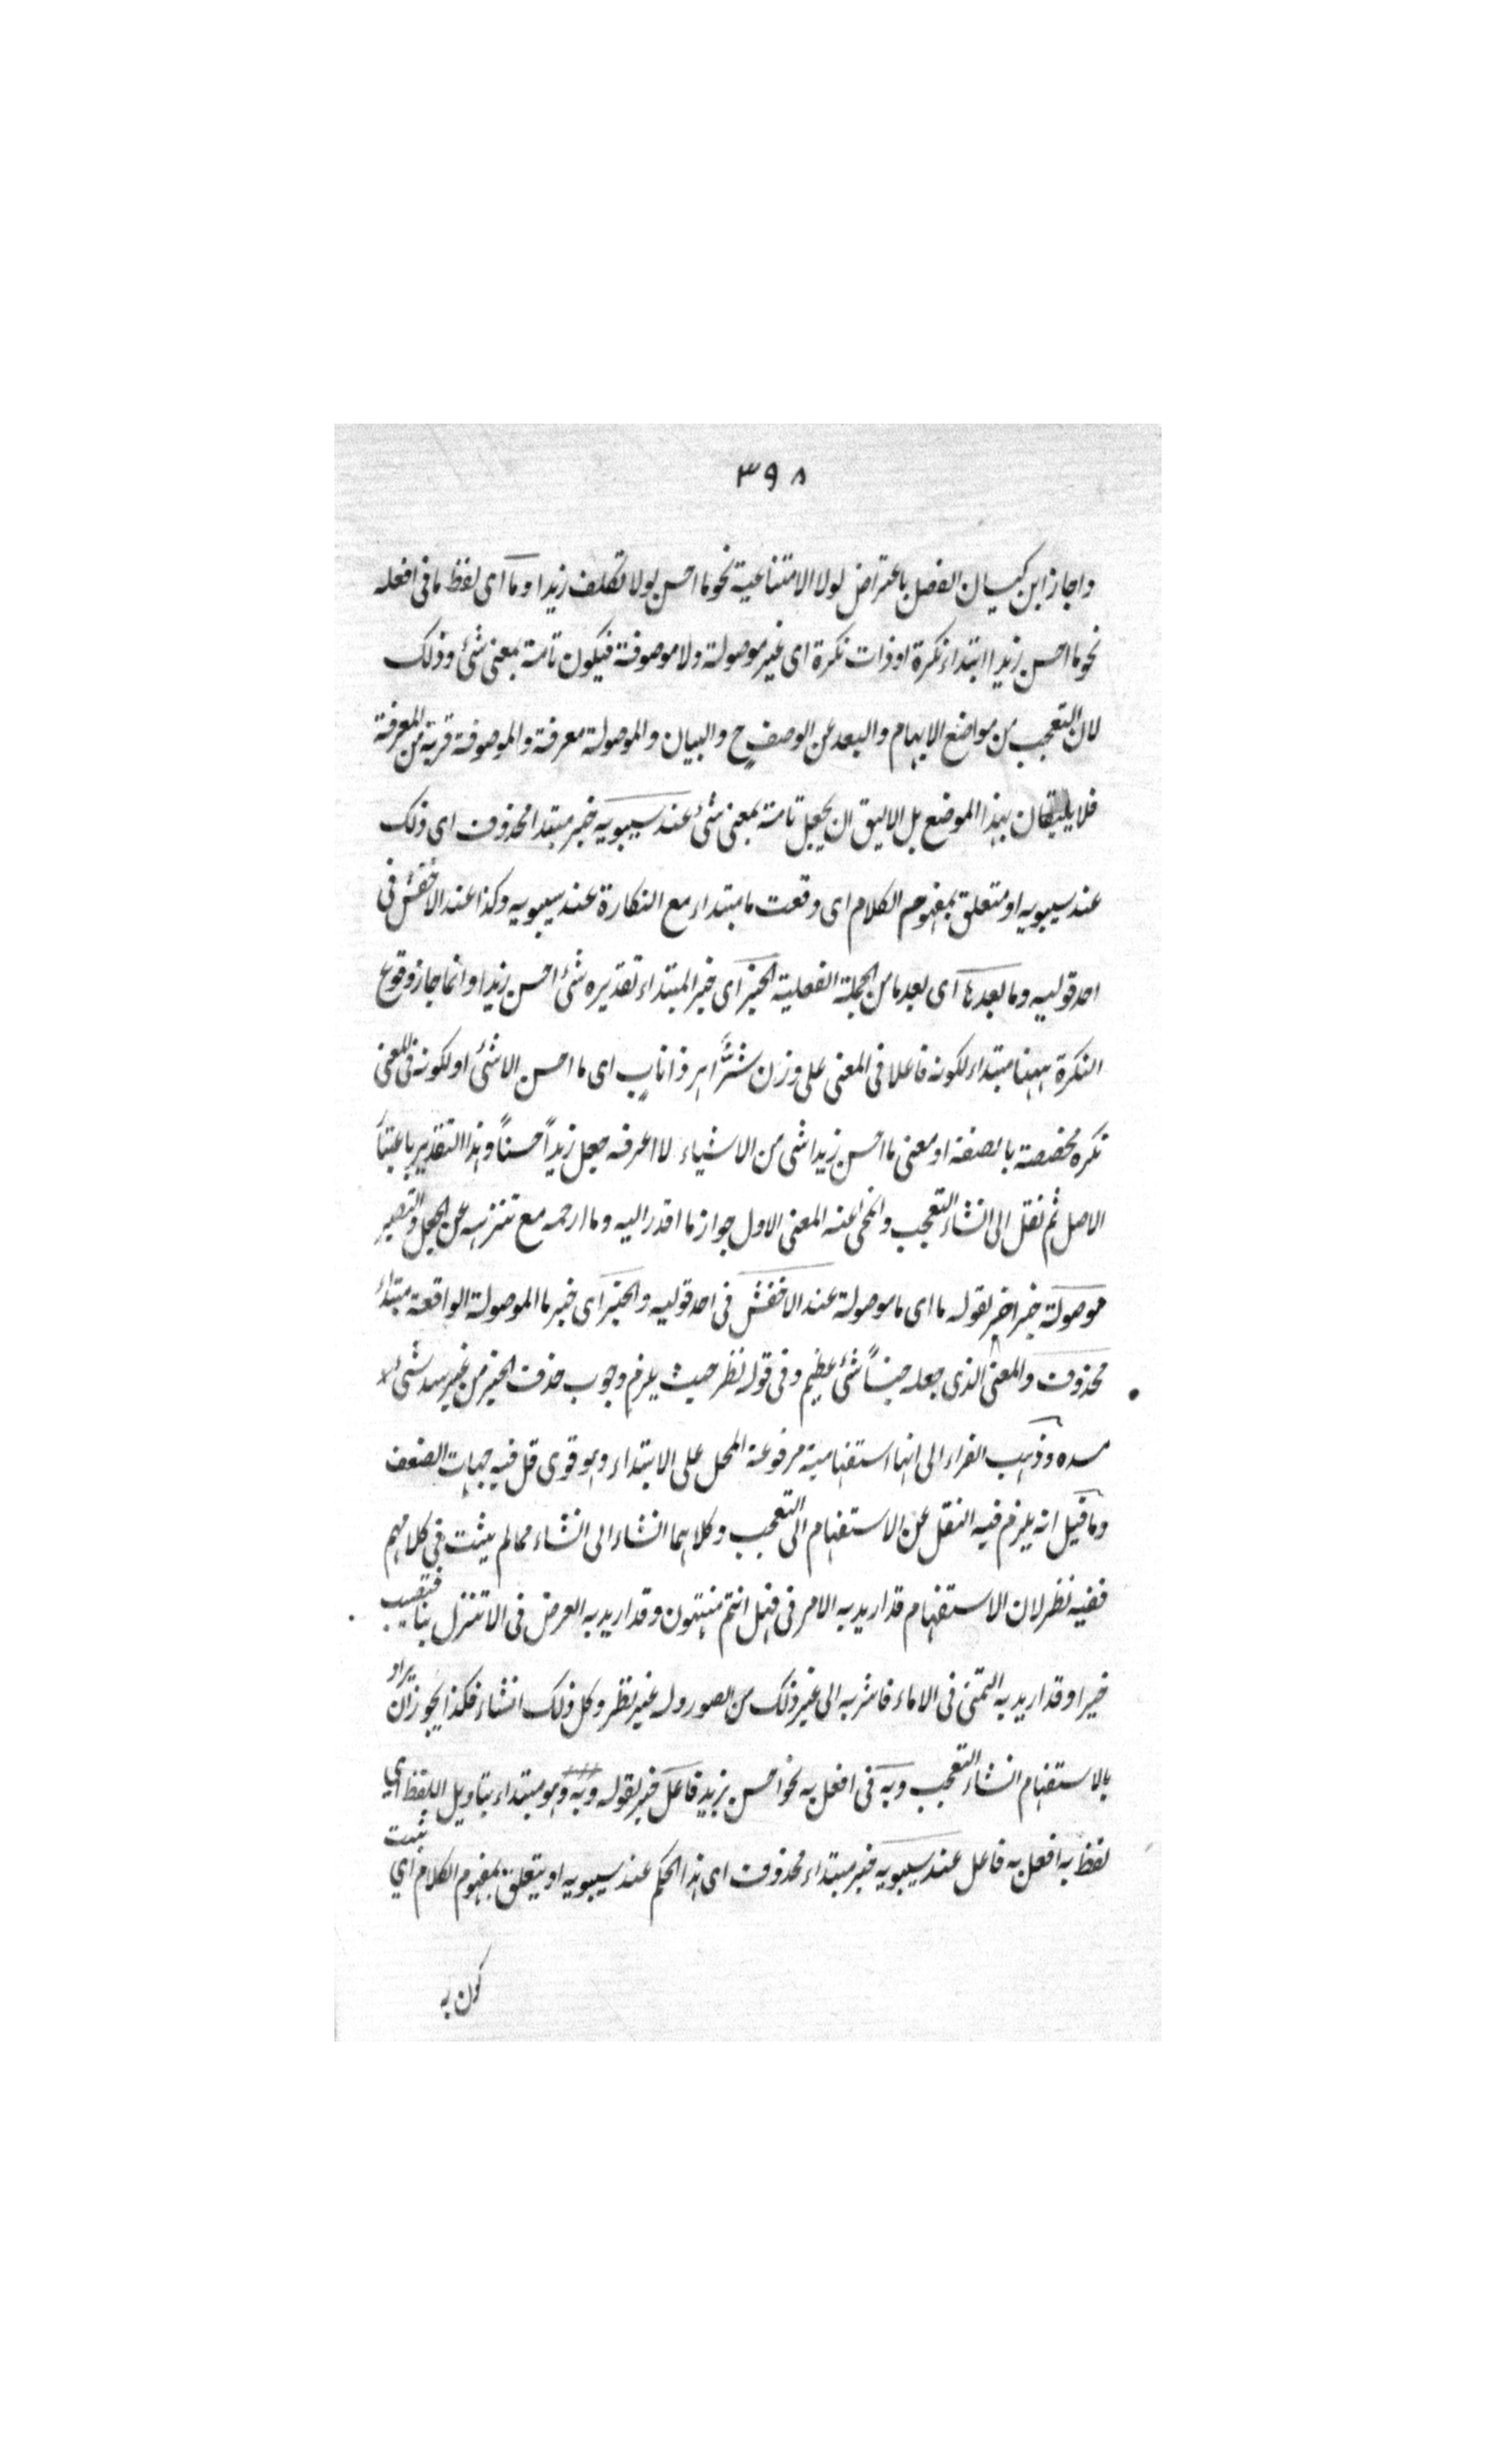 ٣٩٨
واجاز ابن كيسان الفصل باعتراض لولا الامتناعية نحو ما احسن لولا تكلف زيدا وما اى لفظ ما فى افعله
نحو ما احسن زيدا ابتداء نكرة او ذات نكرة اى غير موصولة ولا موصوفة فيكون تامة بمعنى شئ وذلك
لان التعجب من مواضع الابهام والبعد عن الوصف ح والبيان والموصولة معرفة والموصوفة قريبة من المعرفة
فلا يليقان بهذا الموضع بل الاليق ان يجعل تامة بمعنى شئ عند سيبويه خبر مبتدا محذوف اى ذلك
عند سيبويه او متعلق بمفهوم الكلام اى وقعت ما مبتداء مع النكارة عند سيبويه وكذا عند الاخفش فى
احد قوليه وما بعدها اى بعد ما من الجملة الفعلية الخبر اى خبر المبتداء تقديره شئ احسن زيدا وانما جاز وقوع
النكرة ههنا مبتداء لكونه فاعلا فى المعنى على وزن شرٌّ اهر ذا ناب اى ما احسن الا شئ او لكونه فى المعنى
نكرة مخصصة بالصفة او معنى ما احسن زيدا شى من الاشياء لا اعرفه جعل زيداً حسناً وهذا التقدير باعتبار
الاصل ثم نقل الى انشاء التعجب وانمحى عنه المعنى الاول جواز ما اقدر اليه وما ارحمه مع تنزهه عن الجعل والتصيير
موصولة خبر اخر لقوله ما اى ما موصولة عند الاخفش فى احد قوليه والخبر اى خبر ما الموصولة الواقعة مبتداء
محذوف والمعنى الذى جعله حسناً شئ عظيم وفى قوله نظر حيث يلزم وجوب حذف الخبر من غير سد شئ
مسده وذهب الفراء الى انها استفهامية مرفوعة المحل على الابتداء وهو قوى قل فيه جهات الضعف
وما قيل انه يلزم فيه النقل عن الاستفهام الى التعجب وكلاهما انشاء الى انشاء مما لم يثبت فى كلامهم
ففيه نظر لان الاستفهام قد اريد به الامر فى فهل انتم منتهون وقد اريد به العرض فى الا تنزل بنا فتصيب
خيرا وقد اريد به التمنى فى الا ماء فاشربه الى غير ذلك من الصور وله غير نظر وكل ذلك انشاء فكذا يجوز ان يراد
بالاستفهام انشاء التعجب وبه فى افعل به نحو احسن بزيد فاعل خبر لقوله وبه وهو مبتداء بتاويل اللفظ اى
لفظ به افعل به فاعل عند سيبويه خبر مبتداء محذوف اى هذا الحكم عند سيبويه او يتعلق بمفهوم الكلام اى ثبت
كون به